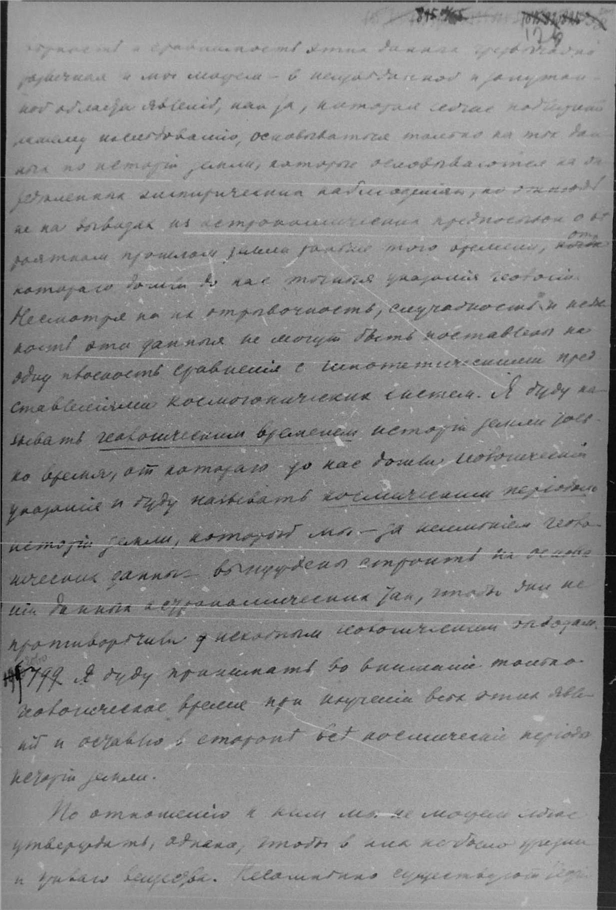 126
ность и сравнимость этих данных чрезвычайно
различная и мы можем – в неизведанной и запутан-
ной области явлений, как та, которая сейчас подлежит
нашему исследованию, основываться только на тех дан-
ных по истории земли, которые основываются на оп
ределенных эмпирических наблюдениях, но
не на выводах из астрономических предпосылок о ве
роятном прошлом земли раньше того времени, от
котораго дошли до нас точныя указания геологии.
Несмотря на их отрывочность, случайность и
ность эти данныя не могут быть поставлены на
одну плоскость сравнения с гипотетическими пред
ставлениями космогонических систем. Я буду на
зывать геологическим временем истории земли толь-
ко время, от котораго до нас дошли геологический
указания и буду называть космическим периодом
истории земли, который мы – за неимением геоло-
гических данных – вынуждены строить на основа
нии данных астрономических так, чтобы они не
противоречили исходным геологическим выводам.
799 Я буду принимать во внимание только
геологическое время при изучении всех этих явле-
ний и оставлю в сторонѣ всѣ космические периоды
истории земли.
По отношению к ним мы не можем
утверждать, однако, чтобы в них не было жизни
и живаго вещества. Несомненно существуют